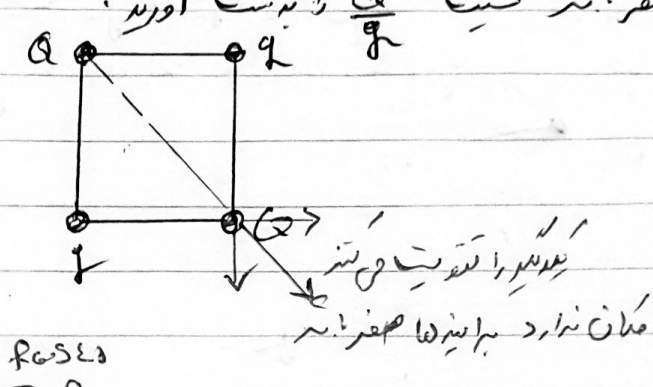 باشد نسبت Q/q را بدست آورید.
Q q
q Q
یکدیگر را تقویت می کنند
امکان ندارد برایند ها صفر باشد